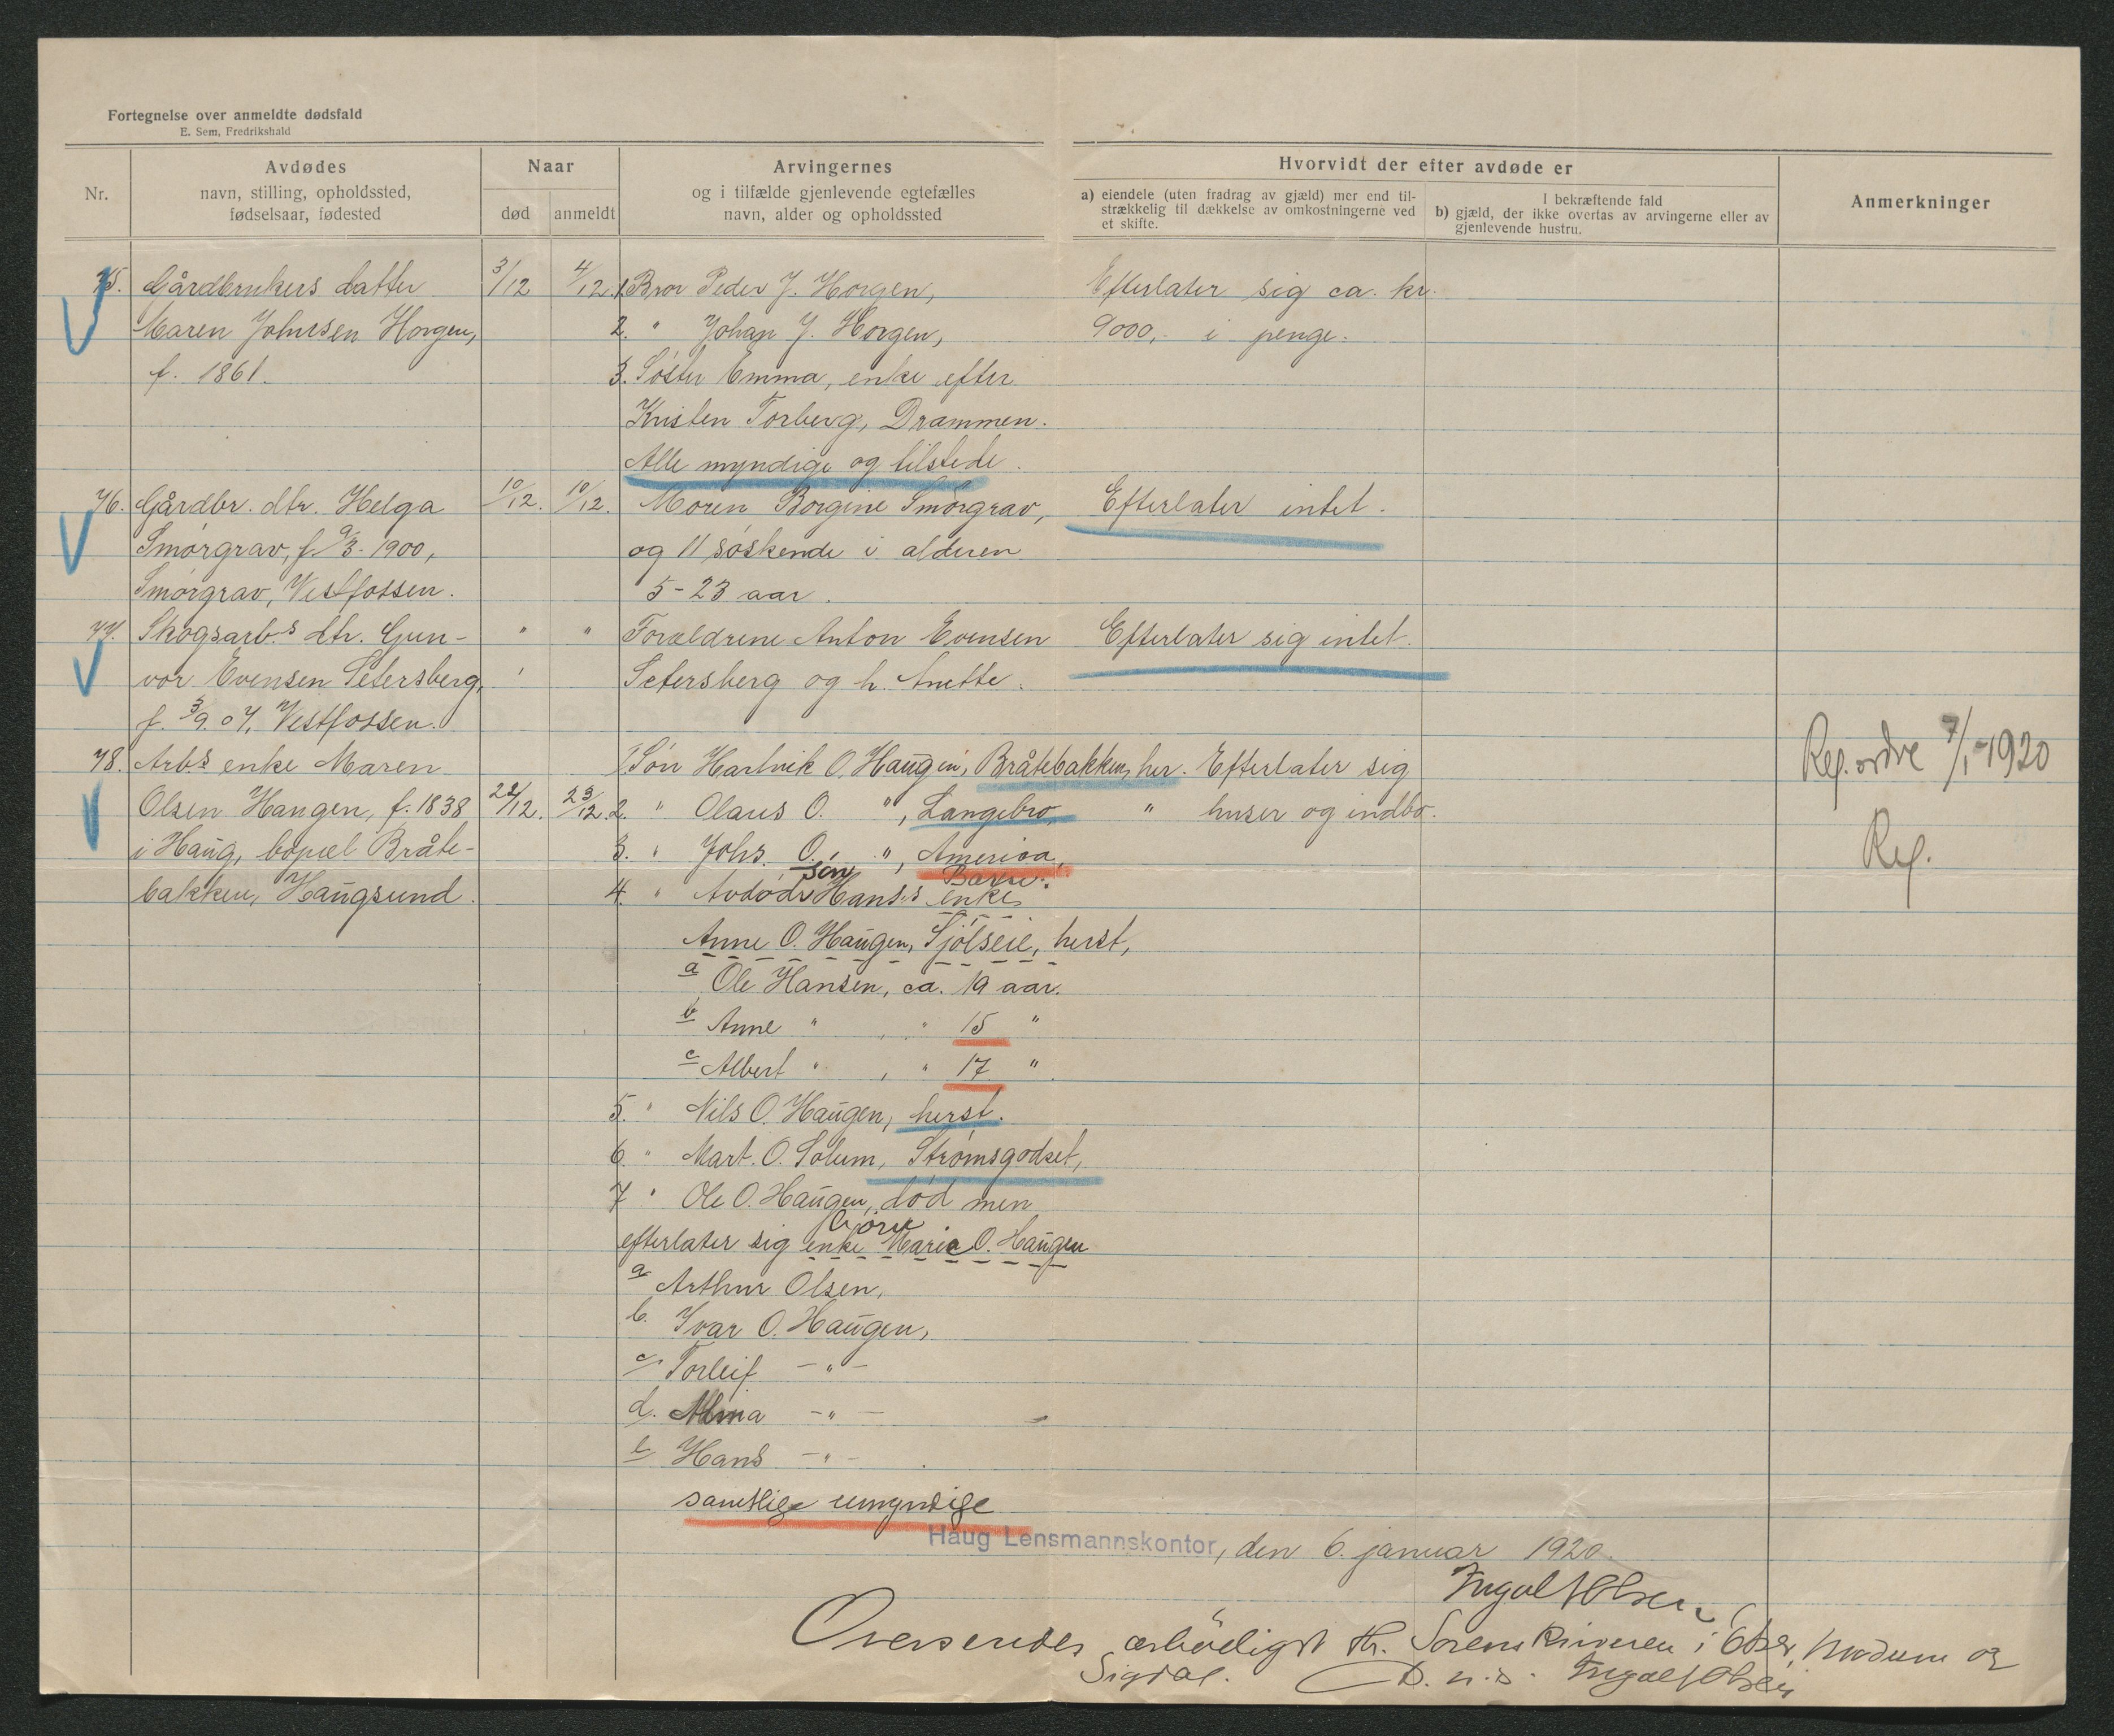 Fortegnelse over anmeldte dødsfald
E. Sem, Fredrikshald
Nr.
Avdødes
navn, stilling, opholdssted,
fødselsaar, fødested
Naar
død
anmeldt
Arvingernes
og i tilfælde gjenlevende egtefælles
navn, alder og opholdssted
Hvorvidt der efter avdøde er
a) eiendele (uten fradrag av gjæld) mer end til-
strækkelig til dækkelse av omkostningerne ved
et skifte.
I bekræftende fald
b) gjæld, der ikke overtas av arvingerne eller av
gjenlevende hustru.
Anmerkninger
75. Gårdbrukers datter 3/12 4/12. 1. Bror Peder J. Horgen, Efterlater sig ca. kr.
Maren Johnsen Horgen, 2. " Johan J. Horgen, 9000,- i penge.
f. 1861. 3. Søster Emma, enke efter
Kristen Torberg, Drammen.
Alle myndige og tilstede.
76. Gårdbr. dtr. Helga 10/12. 10/12. Moren Borgine Smørgrav, Efterlater intet.
Smørgrav, f. 9/3-1900, og 11 søskende i alderen
Smørgrav, Vestfossen. 5-23 aar.
77. Skogsarb.s dtr. Gun- " " Forældrene Anton Evensen Efterlater sig intet.
vor Evensen Setersberg, Setersberg og h. Anette.
f. 3/9.07, Vestfossen.
78. Arb.s enke Maren 1. Søn Hartvik O. Haugen, Bråtebakken, her. Efterlater sig Rep. ordre 7/1-1920
Olsen Haugen, f. 1838 22/12. 23/12. 2. " Olaus O. ", Langebro, " huser og indbo.
i Haug, bopæl Bråte- 3. " Johs. O. ", America, Rep.
søn Barn:
bakken, Haugsund. 4. " Avdøde Hans.s enke
Anne O. Haugen, Sjølseie, herst,
a Ole Hansen, ca. 19 aar.
b Anne " , " 15 "
c Albert " , " 17 "
5. " Nils O. Haugen, herst.
6. " Mart. O. Solum, Strømsgodset,
7 " Ole O. Haugen, død men
efterlater sig enke Marie O. Haugen
a Arthur Olsen,
b. Ivar O. Haugen,
c. Torleif -"-
d. Alma -"-
e Hans -"-
samtlige umyndige
Haug Lensmannskontor, den 6. januar 1920.
Ingolf Olsen
Oversendes ærbødigst Hr. Sorenskriveren i Eker, Modum og
Sigdal. D. u. s. Ingolf Olsen